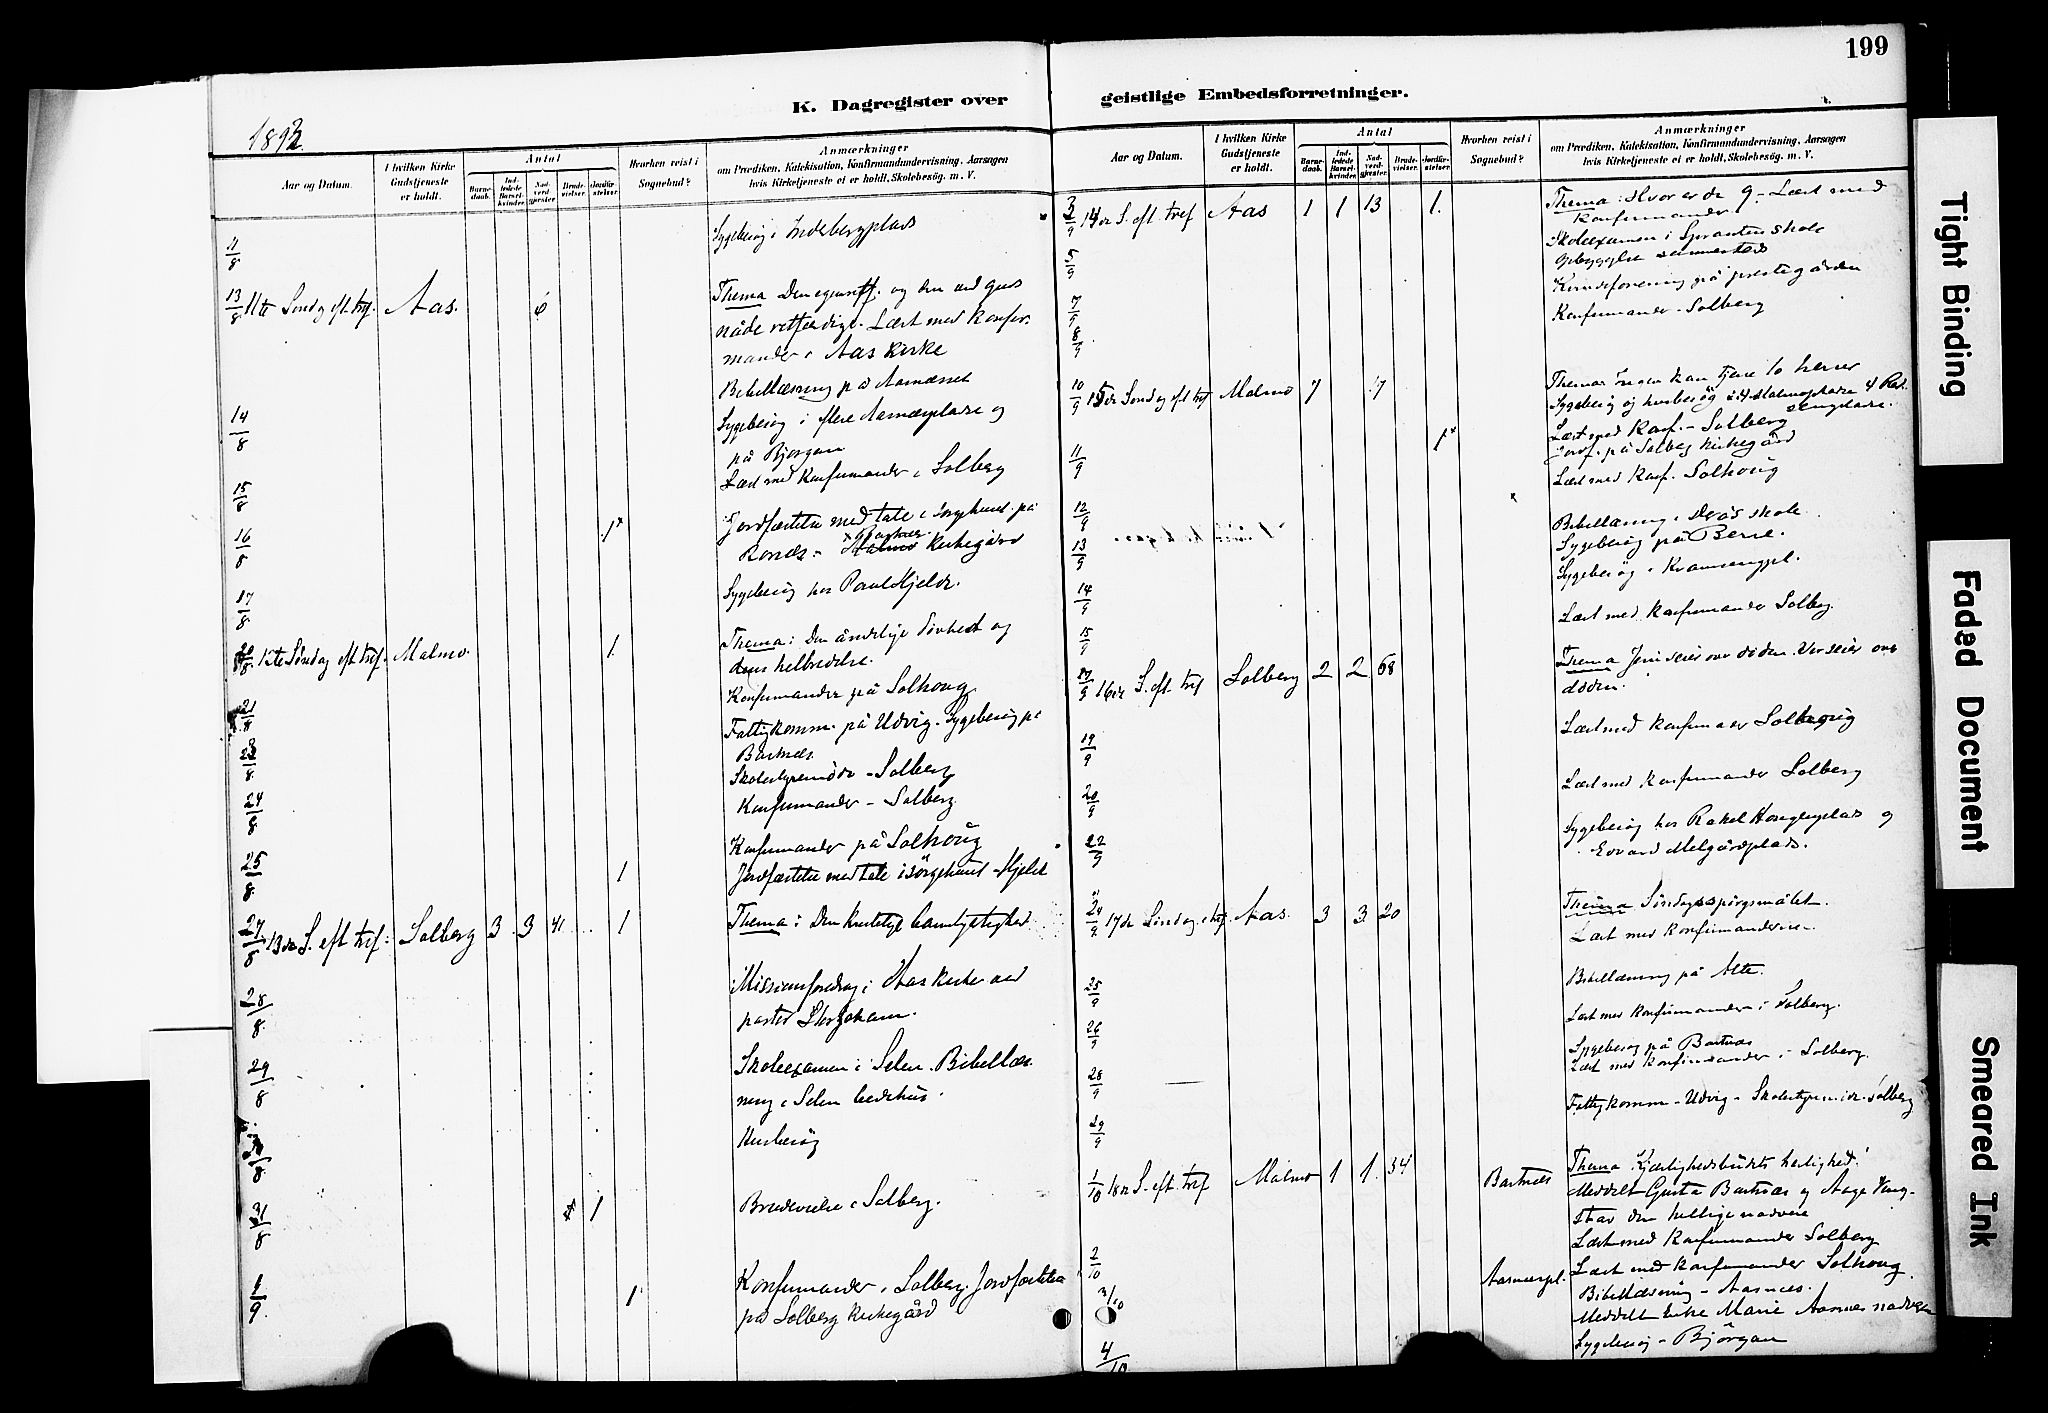 199
K. Dagregister over geistlige Embedsforretninger.
1893
Aar og Datum.
I hvilken Kirke Gudstjeneste er holdt.
Antal
Barnedaab.
Indledede Barselkvinder.
Nadverdgjester
Brudevielser.
Jordfæstelser
Hvorhen reist i Sognebud?
Anmærkninger
om Prædiken, Katekisation, Konfirmandundervisning, Aarsagen
hvis Kirketjeneste ei er holdt, Skolebesøg. m. V.
11/8 Sygebesög i
13/8 11te Söndag eft. tref. Aas. 6 Thema Den egenretf. og den ved guds
nåde retferdige. Læst med konfir-
mander i Aas kirke
Bibellæsning på Aasnæsset
14/8 Sygebesög i flere Aasnæspladse og
på Bjørgan
15/8 Læst med konfirmander i Solberg
16/8 1x Jordfæstelse med tale i sorgehuset på
x Bartnes
Malmo kirkegård
17/8 Sygebesög hos Paul Hjelde.
20/8 12te Söndag eft. tref. Malmo. 1. Thema: Den åndelige dövhed og
dens helbredelse.
21/8 Konfirmander på Solhoug
23/8 Fattigkomm. på Udvig. Sygebesög på
Bartnæs
Skolestyremöde - Solberg
24/8 Konfirmander - Solberg
25/8 Konfirmander på Solhoug
1 Jordfæstelse med tale i sörgehuset - Hjelde
27/8 13de S. eft. tref. Solberg 3 3 41 1 Thema: Den kristelige barmhjertighed
28/8 Missionsforedrag i Aas kirke ved
pastor
29/8 Skoleexamen i Selen. Bibellæs-
ning i Selen bedehus.
Husbesög
31/8 1 Brudevielse i Solberg.
1/9 1 Konfirmander i Solberg. Jordfæstelse
på Solberg kirkegård
Aar og Datum.
I hvilken Kirke Gudstjeneste er holdt.
Antal
Barnedaab.
Indledede Barselkvinder.
Nadverdgjester
Brudevielser.
Jordfæstelser
Hvorhen reist i Sognebud?
Anmærkninger
om Prædiken, Katekisation, Konfirmandundervisning, Aarsagen
hvis Kirketjeneste ei er holdt, Skolebesøg. m. V.
3/9 14de S. eft. tref Aas 1 1 13 1. Thema: Hvor er de 9. - Læst med
Konfirmander
5/9 Skoleexamen i skole
Opbyggelse sammesteds
7/9 Kvindeforening på prestegården
8/9 Konfirmander - Solberg
10/9 15de Söndag eft. tref Malmo 7 17 Thema: Ingen kan tjene to herrer
Sygebesög og husbesög i
11/9 1x Læst med konf. - Solberg
Jordf. på Solberg kirkegård
12/9 Læst med konf. Solhoug
13/9 Bibellæsning i skole
14/9 Sygebesög på Berre.
Sygebesög i
15/9 Læst med konfirmander Solberg.
17/9 16de S. eft. tref Solberg 2 2 68 Thema Jesu seier over döden. Vor seier over
döden.
19/9 Læst med konfirmander Solhoug
20/9 Læst med konfirmander Solberg
22/9 Sygebesög hos Rakel og
Edvard Melgårdplads.
24/9 17de Söndag e. tref Aas. 3 3 20 Thema Söndagsspörgsmålet.
Læst med konfirmanderne -
25/9 Bibellæsning på
26/9 Læst med konfirmander i Solberg.
28/9 Sygebesög på Bartnæs
Læst med konfirmander i Solberg.
29/9 Fattigkomm - Udvig - Skolestyremöde - Solberg
1/10 18de S. eft. tref Malmo 1 1 34 Bartnæs Thema Kjærlighedsbudets herlighed.
Meddelt Gusta Bartnæs og Aage Ving-
stad den hellige nadvere
2/10 Læst med konfirmander Solberg
3/10 Aasnæspl. Læst med konfirmander Solhoug
Bibellæsning - Aasnæs.
Meddelt Marie Aasnæs nadveren
4/10 Sygebesög - Björgan
Tight Binding
Faded Document
Smeared Ink